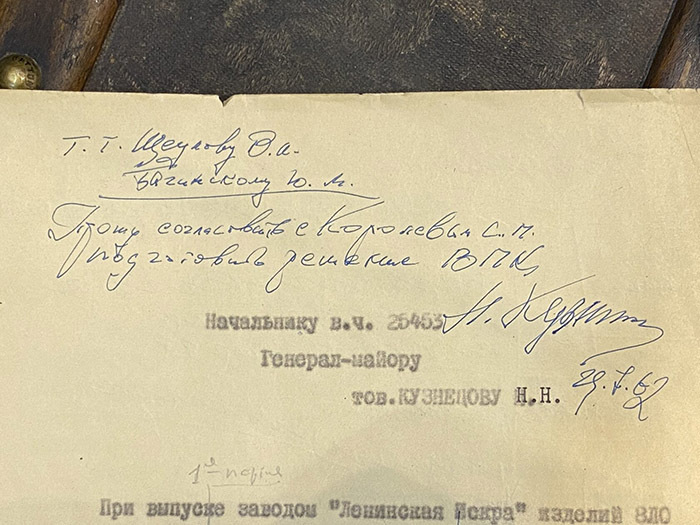 Т. Т. Щеулову В. А.
Вагинскому Ю. М.
Прошу согласовать с Королевым С. П.
подготовить решение ВПК
Начальнику в.ч. 26453
Генерал-майору
тов. КУЗНЕЦОВУ Н.Н.
1я партия
При выпуске заводом "Ленинская Искра" изделий 8Л0